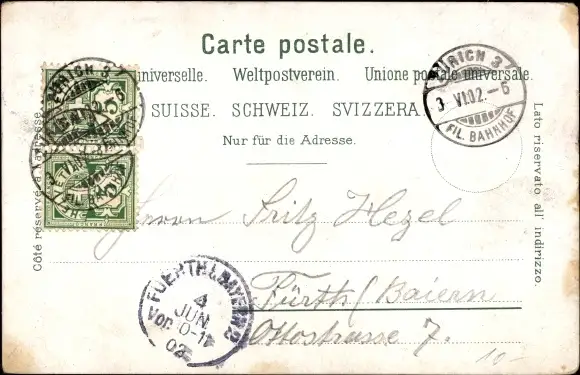 Carte postale.
universelle. Weltpostverein. Unione postale universale.
SUISSE. SCHWEIZ. SVIZZERA.
Nur für die Adresse.
Côté réservé à l'adresse.
Lato riservato all' indirizzo.
ZÜRICH 3
3. VI.02.-6
FIL. BAHNHOF
ZÜRICH 3
FIL. BAHNHOF
5
Herrn Fritz Hezel
Fürth / Baiern
Ottostrasse 7.
FUERTH (BAYERN) 2
4
JUN
02
10-